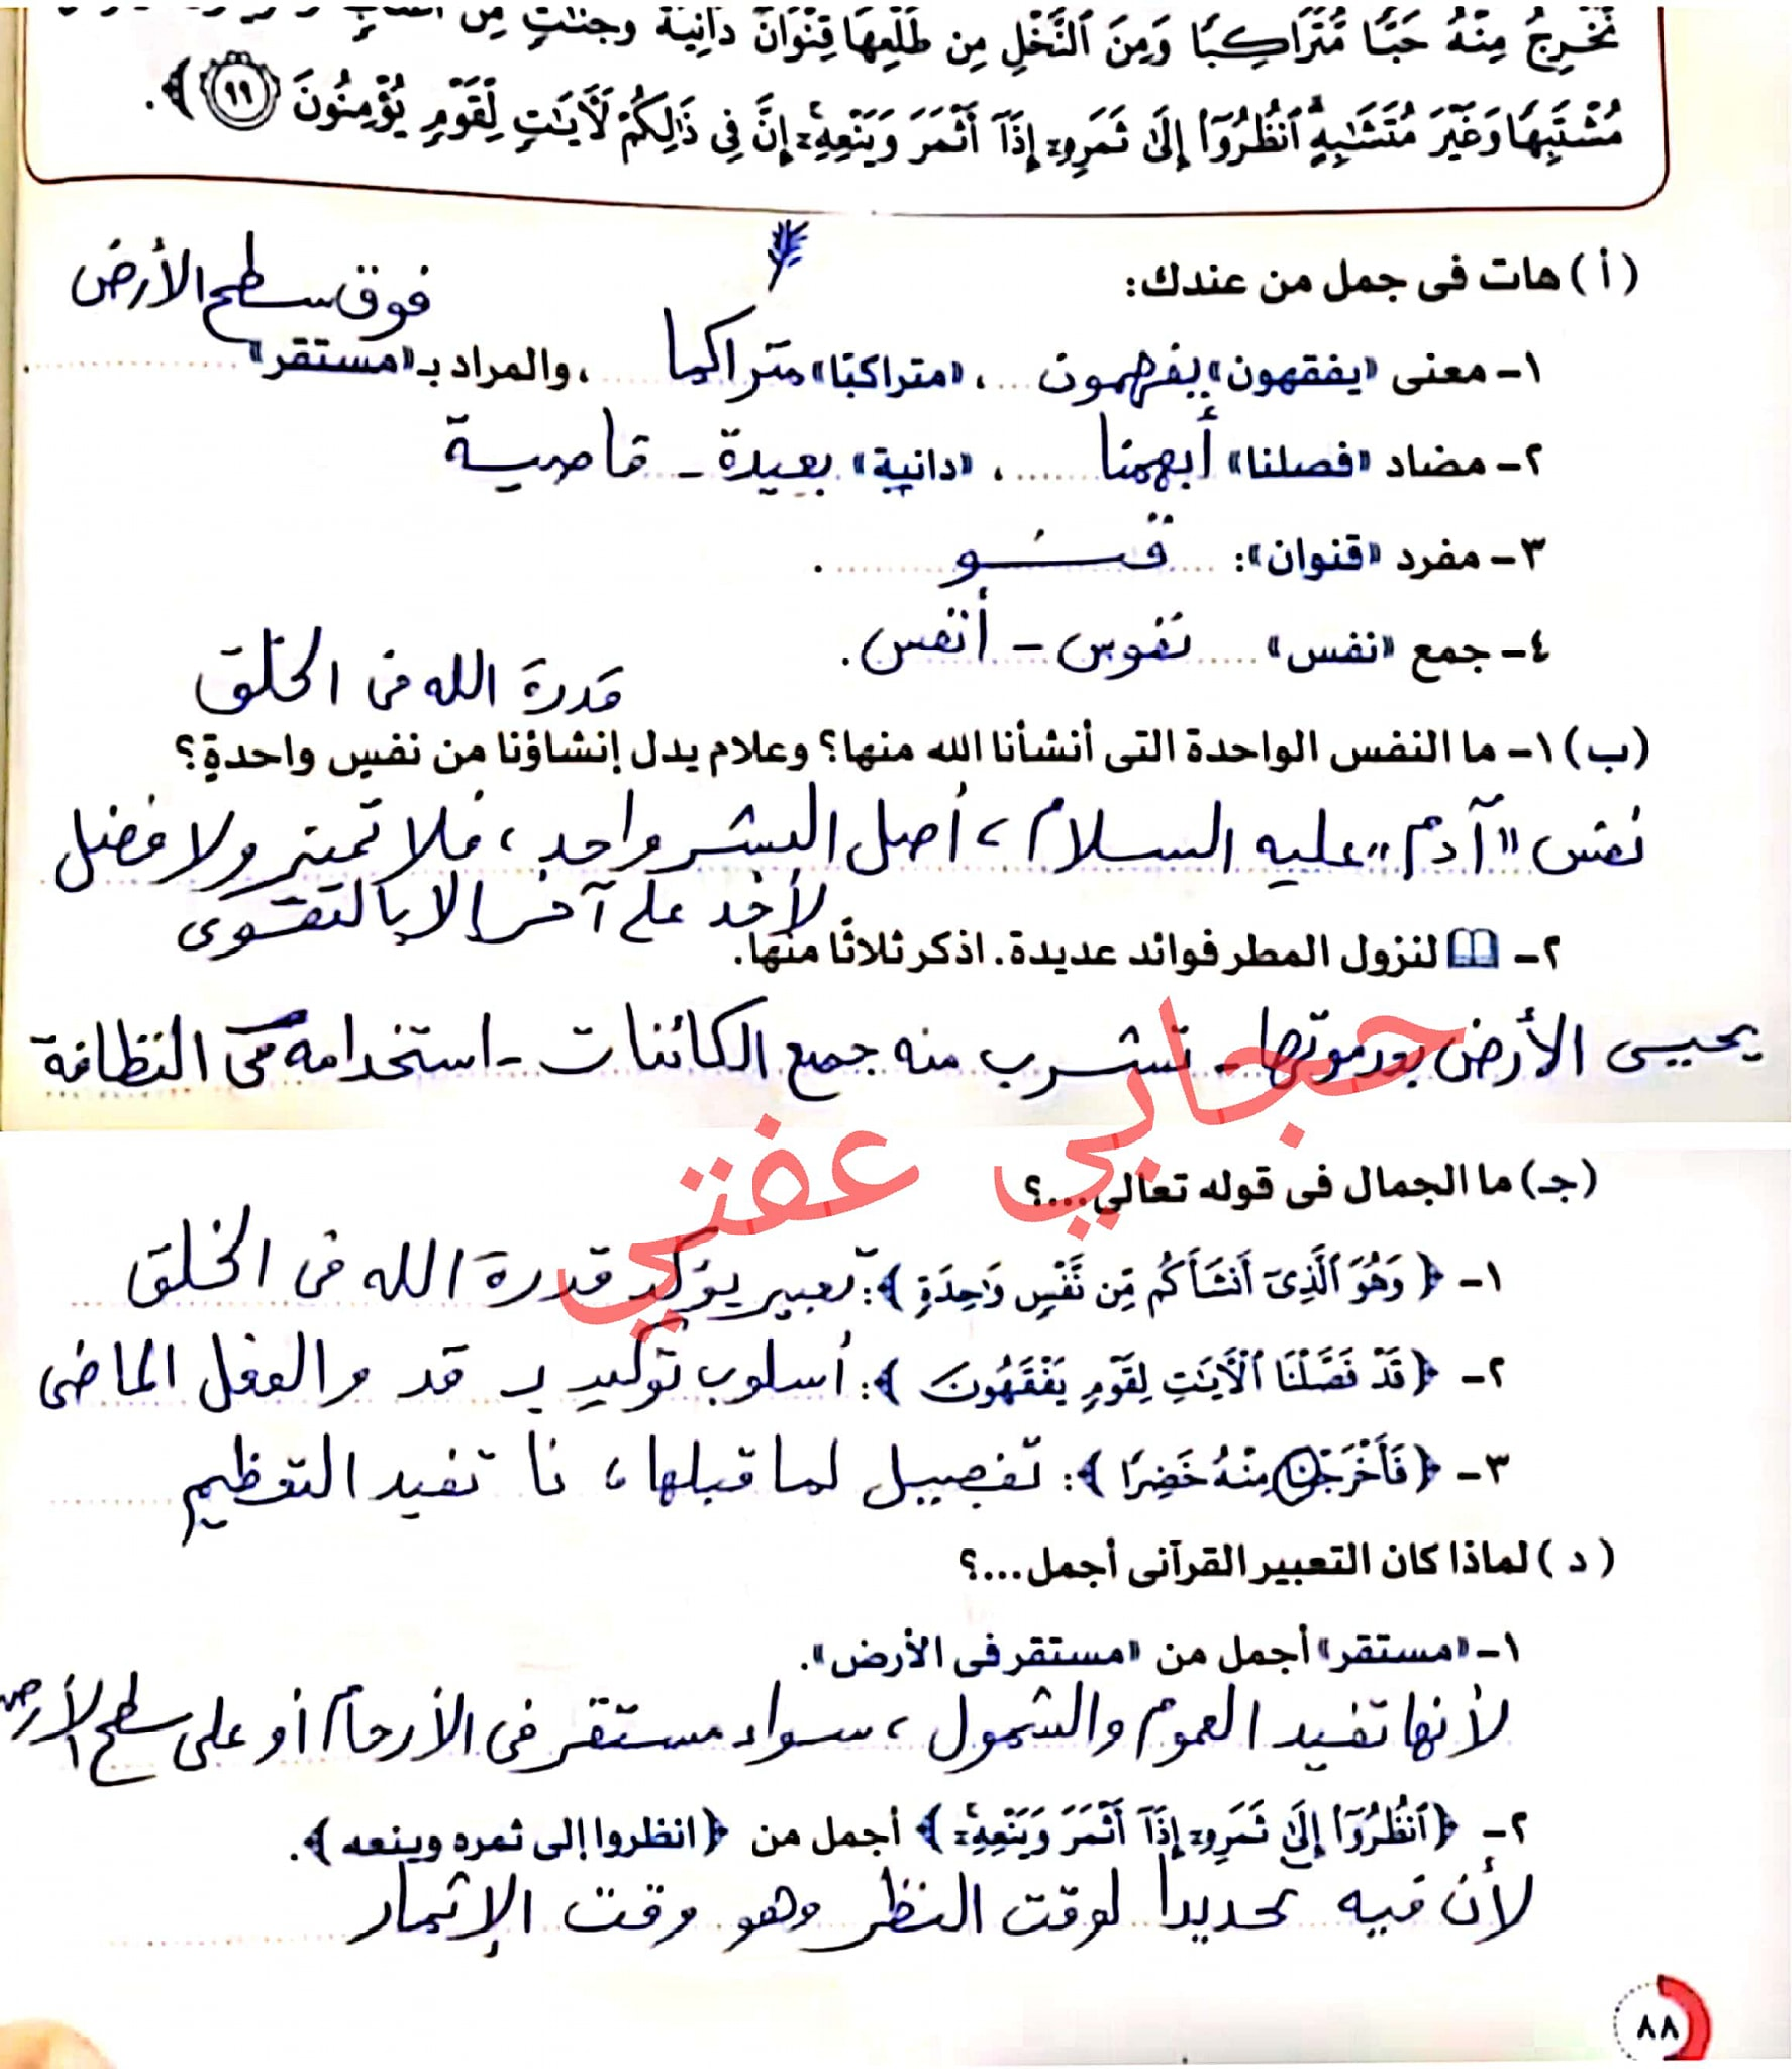 نُّخْرِجُ مِنْهُ حَبًّا مُّتَرَاكِبًا وَمِنَ ٱلنَّخْلِ مِن طَلْعِهَا قِنْوَانٌ دَانِيَةٌ وَجَنَّٰتٍ مِّنْ
مُشْتَبِهًا وَغَيْرَ مُتَشَٰبِهٍ ٱنظُرُوٓا۟ إِلَىٰ ثَمَرِهِۦٓ إِذَآ أَثْمَرَ وَيَنْعِهِۦٓ إِنَّ فِى ذَٰلِكُمْ لَـَٔايَٰتٍ لِّقَوْمٍ يُؤْمِنُونَ ٩٩ ﴾.
(أ) هات فى جمل من عندك:
فوق سطح الأرض
١- معنى «يفقهون» يفهمون ... ، «متراكبًا» متراكما ... ، والمراد بـ«مستقر» ...
٢- مضاد «فصلنا» أبهمنا ... ، «دانية» بعيدة - قاصية
٣- مفرد «قنوان»: ... قنو ... .
٤- جمع «نفس» ... نفوس - أنفس .
قدرة الله فى الخلق
(ب) ١- ما النفس الواحدة التى أنشأنا الله منها؟ وعلام يدل إنشاؤنا من نفسٍ واحدةٍ؟
نفس "آدم" عليه السلام ، أصل البشر واحد ، فلا تميز ولا فضل
لأحد على آخر إلا بالتقوى
٢- لنزول المطر فوائد عديدة. اذكر ثلاثًا منها.
يحيى الأرض بعد موتها - تشرب منه جميع الكائنات - استخدامه فى النظافة
حجابي عفتي
(جـ) ما الجمال فى قوله تعالى...؟
١- ﴿ وَهُوَ ٱلَّذِىٓ أَنشَأَكُم مِّن نَّفْسٍ وَٰحِدَةٍ ﴾: تعبير يؤكد قدرة الله فى الخلق
٢- ﴿ قَدْ فَصَّلْنَا ٱلْـَٔايَٰتِ لِقَوْمٍ يَفْقَهُونَ ﴾: أسلوب توكيد بـ قد والفعل الماضى
٣- ﴿ فَأَخْرَجْنَا مِنْهُ خَضِرًا ﴾: تفصيل لما قبلها ، نا تفيد التعظيم
(د) لماذا كان التعبير القرآنى أجمل...؟
١- «مستقر» أجمل من «مستقر فى الأرض».
لأنها تفيد العموم والشمول ، سواء مستقر فى الأرحام أو على سطح الأرض
٢- ﴿ٱنظُرُوٓا۟ إِلَىٰ ثَمَرِهِۦٓ إِذَآ أَثْمَرَ وَيَنْعِهِۦٓ﴾ أجمل من ﴿انظروا إلى ثمره وينعه﴾.
لأن فيه تحديداً لوقت النظر وهو وقت الإثمار
٨٨